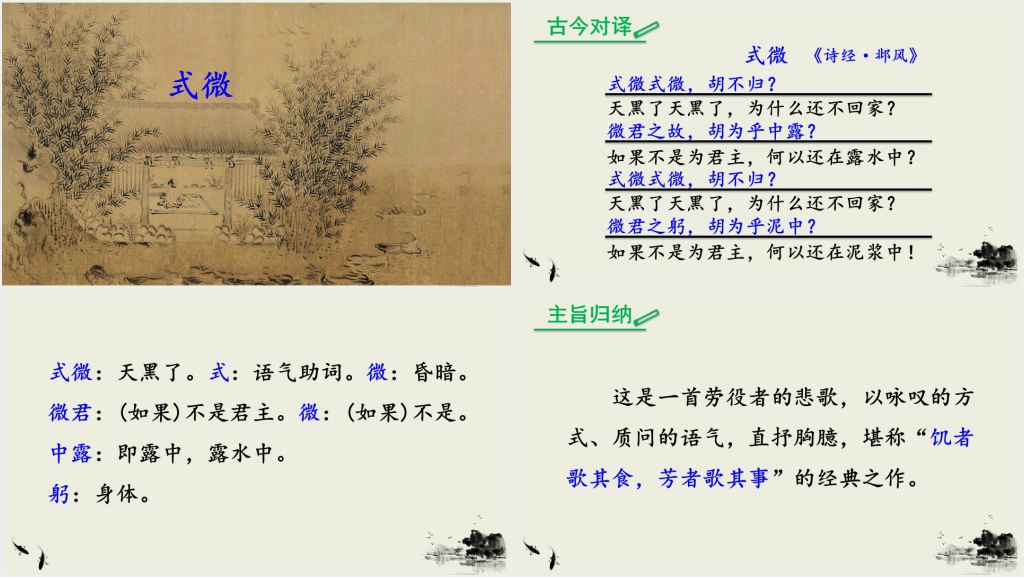 式微
古今对译
式微 《诗经·邶风》
式微式微，胡不归？
天黑了天黑了，为什么还不回家？
微君之故，胡为乎中露？
如果不是为君主，何以还在露水中？
式微式微，胡不归？
天黑了天黑了，为什么还不回家？
微君之躬，胡为乎泥中？
如果不是为君主，何以还在泥浆中！
式微：天黑了。式：语气助词。微：昏暗。
微君：(如果)不是君主。微：(如果)不是。
中露：即露中，露水中。
躬：身体。
主旨归纳
这是一首劳役者的悲歌，以咏叹的方
式、质问的语气，直抒胸臆，堪称“饥者
歌其食，芳者歌其事”的经典之作。